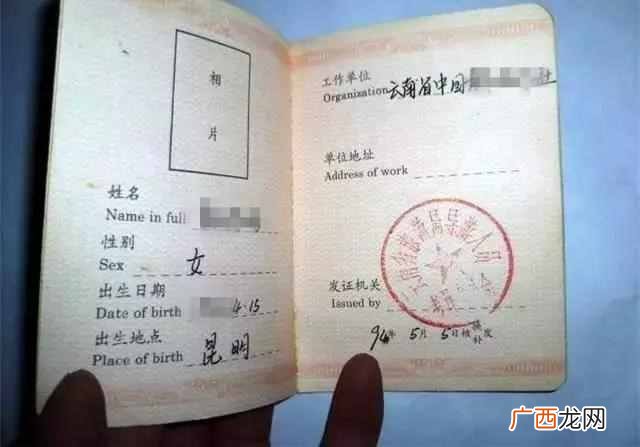 相
片
姓名
Name in full
性别
Sex 女
出生日期
Date of birth 4·15
出生地点
Place of birth 昆明
工作单位
Organization 云南省中国 社
单位地址
Address of work
云南省旅游局导游人员
发证机关
Issued by
94年5月5日核 补发
广西龙网